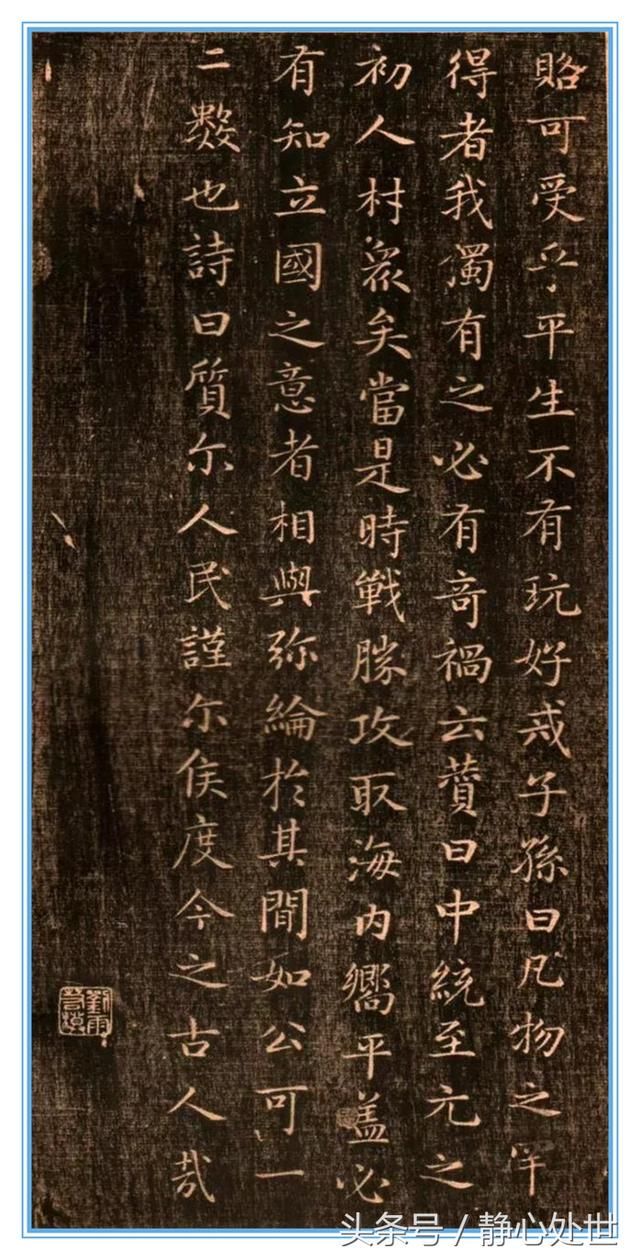 賂可受乎平生不有玩好戒子孫曰凡物之罕
得者我獨有之必有奇禍云贊曰中統至元之
初人材衆矣當是時戰勝攻取海内嚮平盖必
有知立國之意者相與弥綸於其間如公可一
二數也詩曰質尓人民謹尓侯度今之古人哉
劉雨若模
头条号 / 静心处世